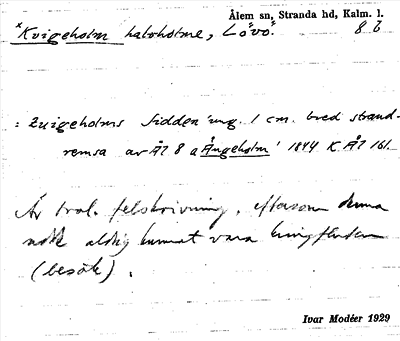 Ålem sn, Stranda hd, Kalm. l.
*Kvigeholm halvholme, Lövö. 8 b
: Zuigeholms Sidden 'ung. 1 cm. bred strand-
remsa av Äl 8 a Ängeholm' 1844 K Ål 161.
Är trol. felskrivning, eftersom denna
udde aldrig kunnat vara
(besök).
Ivar Modéer 1929